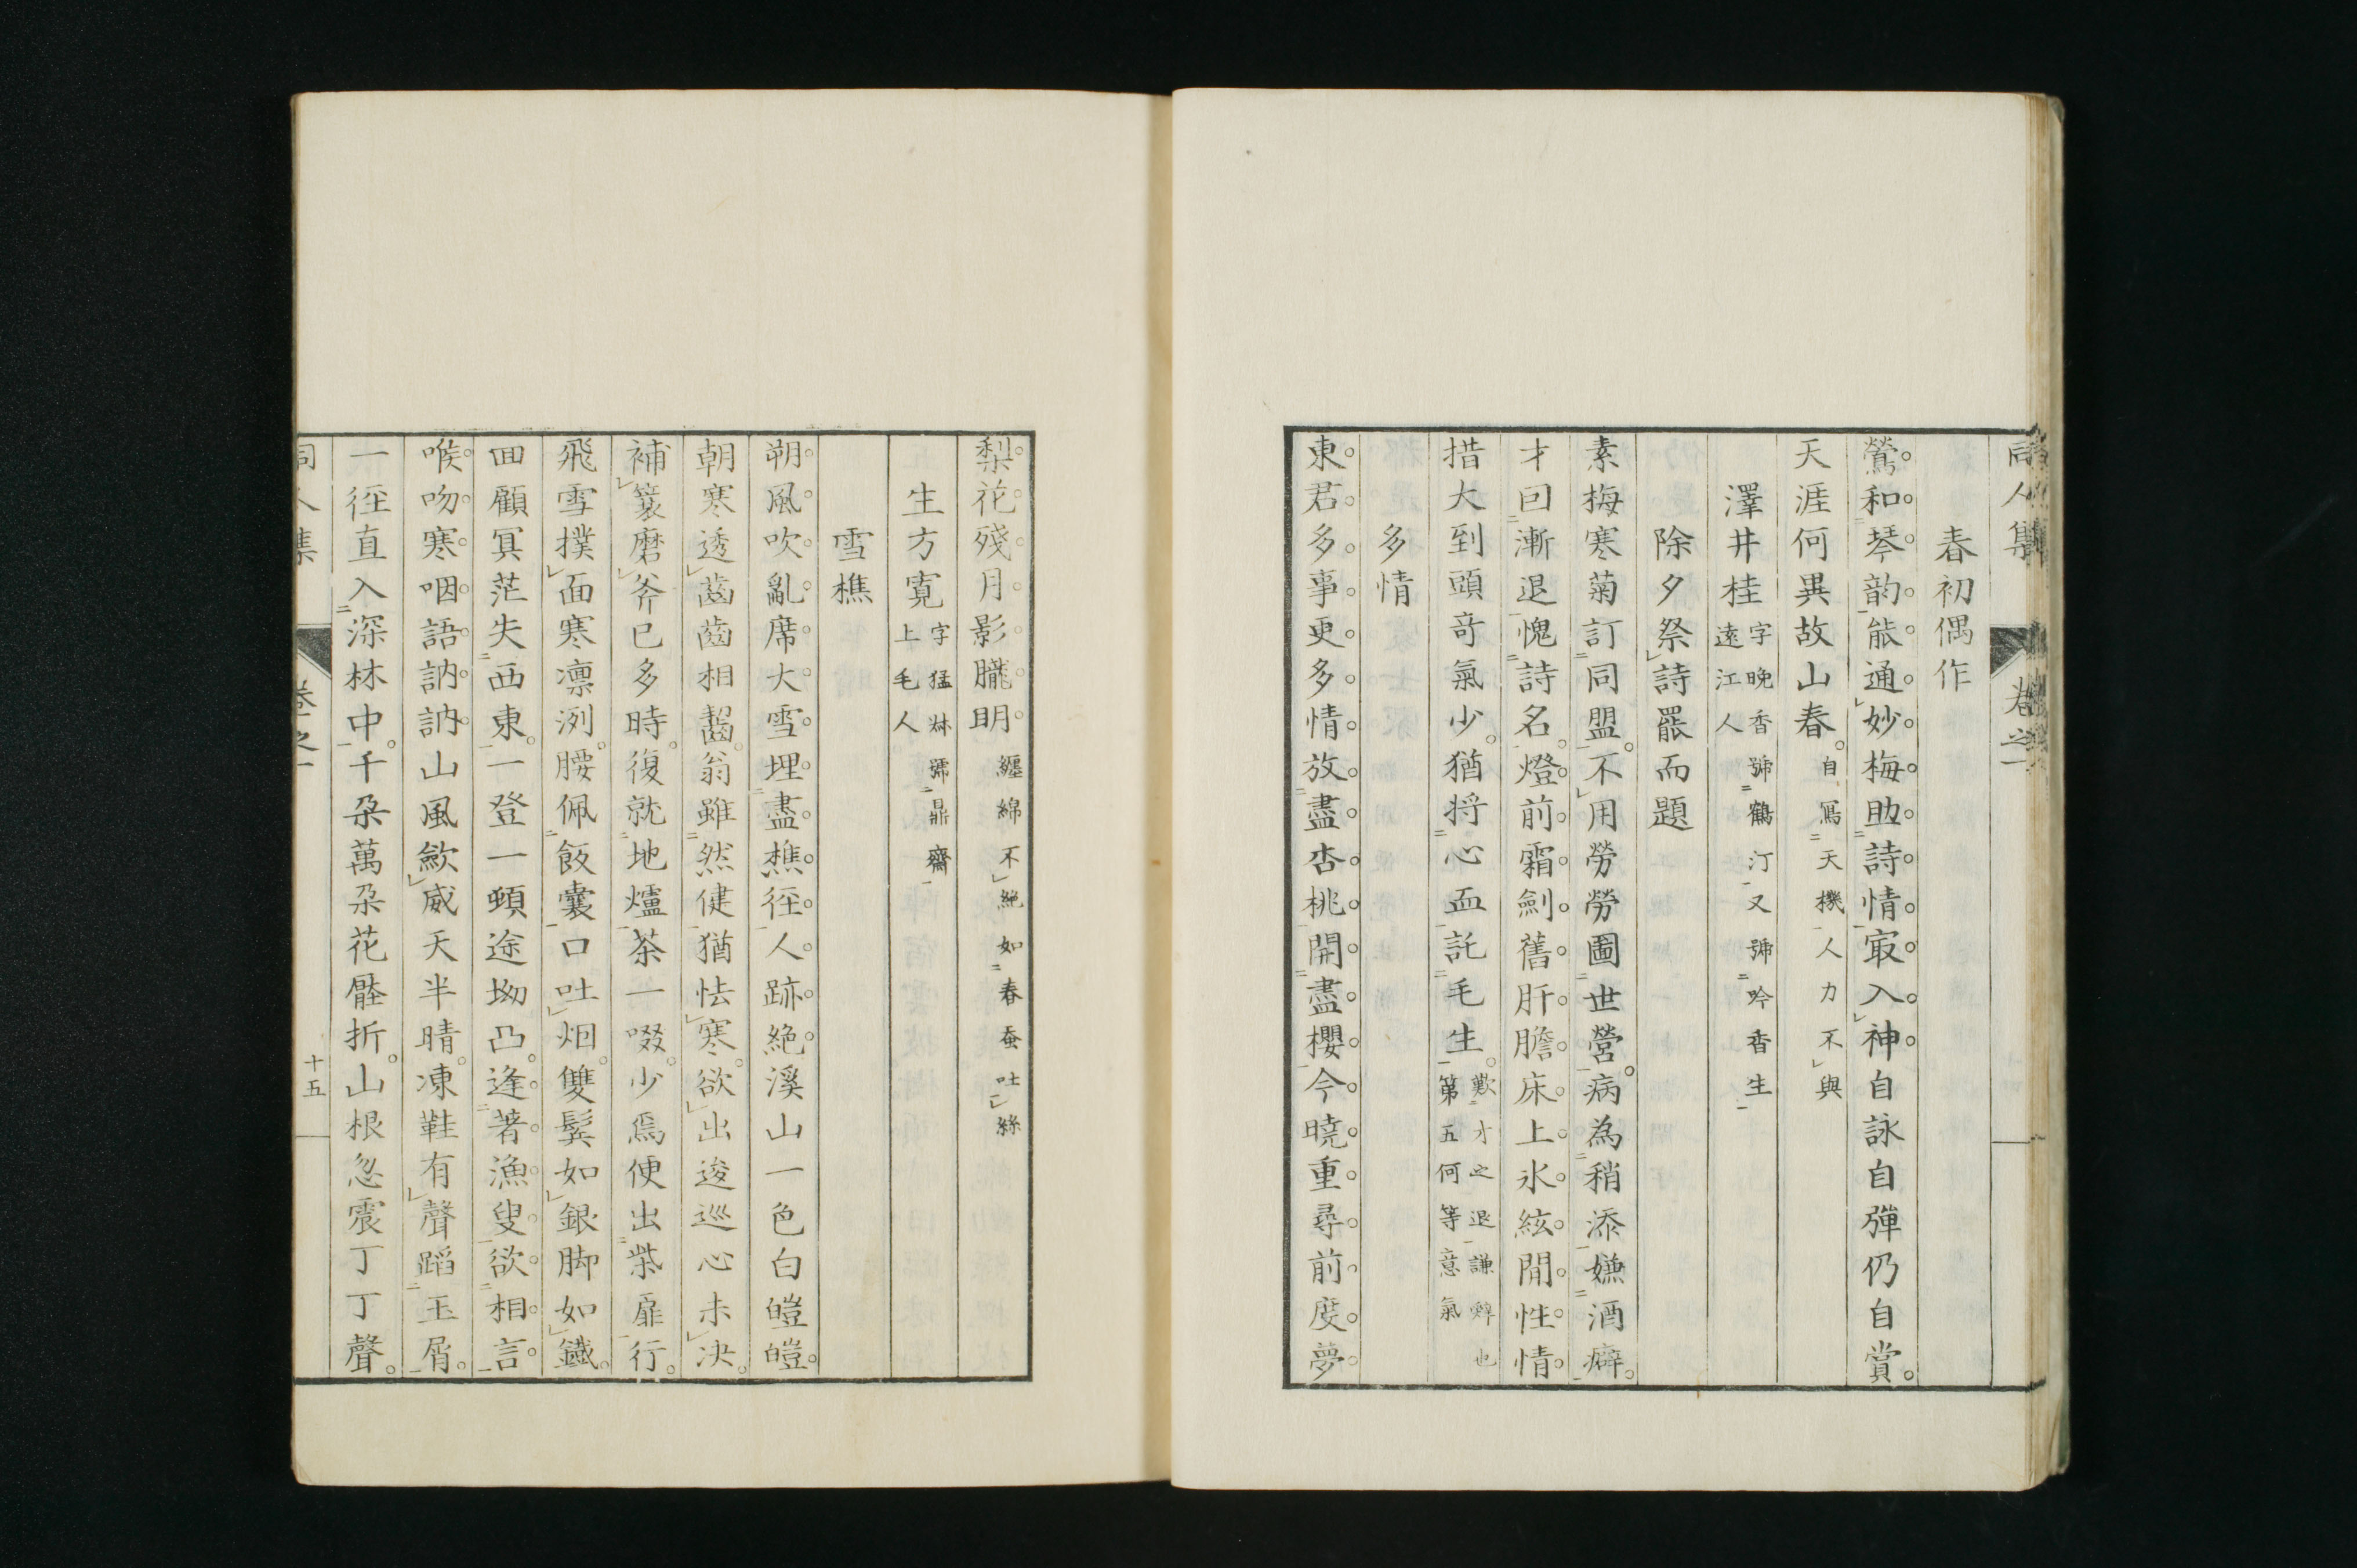 同人集 卷之一
春初偶作
鶯和琴韵能通妙梅助詩情㝡入神自詠自彈仍自賞
天涯何異故山春自寫天機人力不與
澤井桂字晚香號鶴汀又號吟香生遠江人
除夕祭詩罷而題
素梅寒菊訂同盟不用勞勞圖世營病為稍添嫌酒癖
才回漸退愧詩名燈前霜劍舊肝膽床上氷絃閒性情
措大到頭奇氣少猶将心血託毛生歎才之退謙辭也第五何等意氣
多情
東君多事更多情放盡杏桃開盡櫻今曉重尋前度夢
梨花殘月影朧明纏綿不絕如春蚕吐絲
生方寬字猛㳤號鼎齋上毛人
雪樵
朔風吹亂席大雪埋盡樵徑人跡絕溪山一色白皚皚
朝寒透齒齒相齧翁雖然健猶怯寒欲出逡巡心未决
補簑磨斧已多時復就地爐茶一啜少焉便出柴扉行
飛雪撲面寒凛洌腰佩飯囊口吐烟雙鬓如銀脚如鐵
回顧冥茫失西東一登一頓途坳凸逢著漁叟欲相言
喉吻寒咽語訥訥山風歛威天半晴凍鞋有聲蹈玉屑
一徑直入深林中千朶萬朶花壓折山根忽震丁丁聲
同人集 卷之一 十五